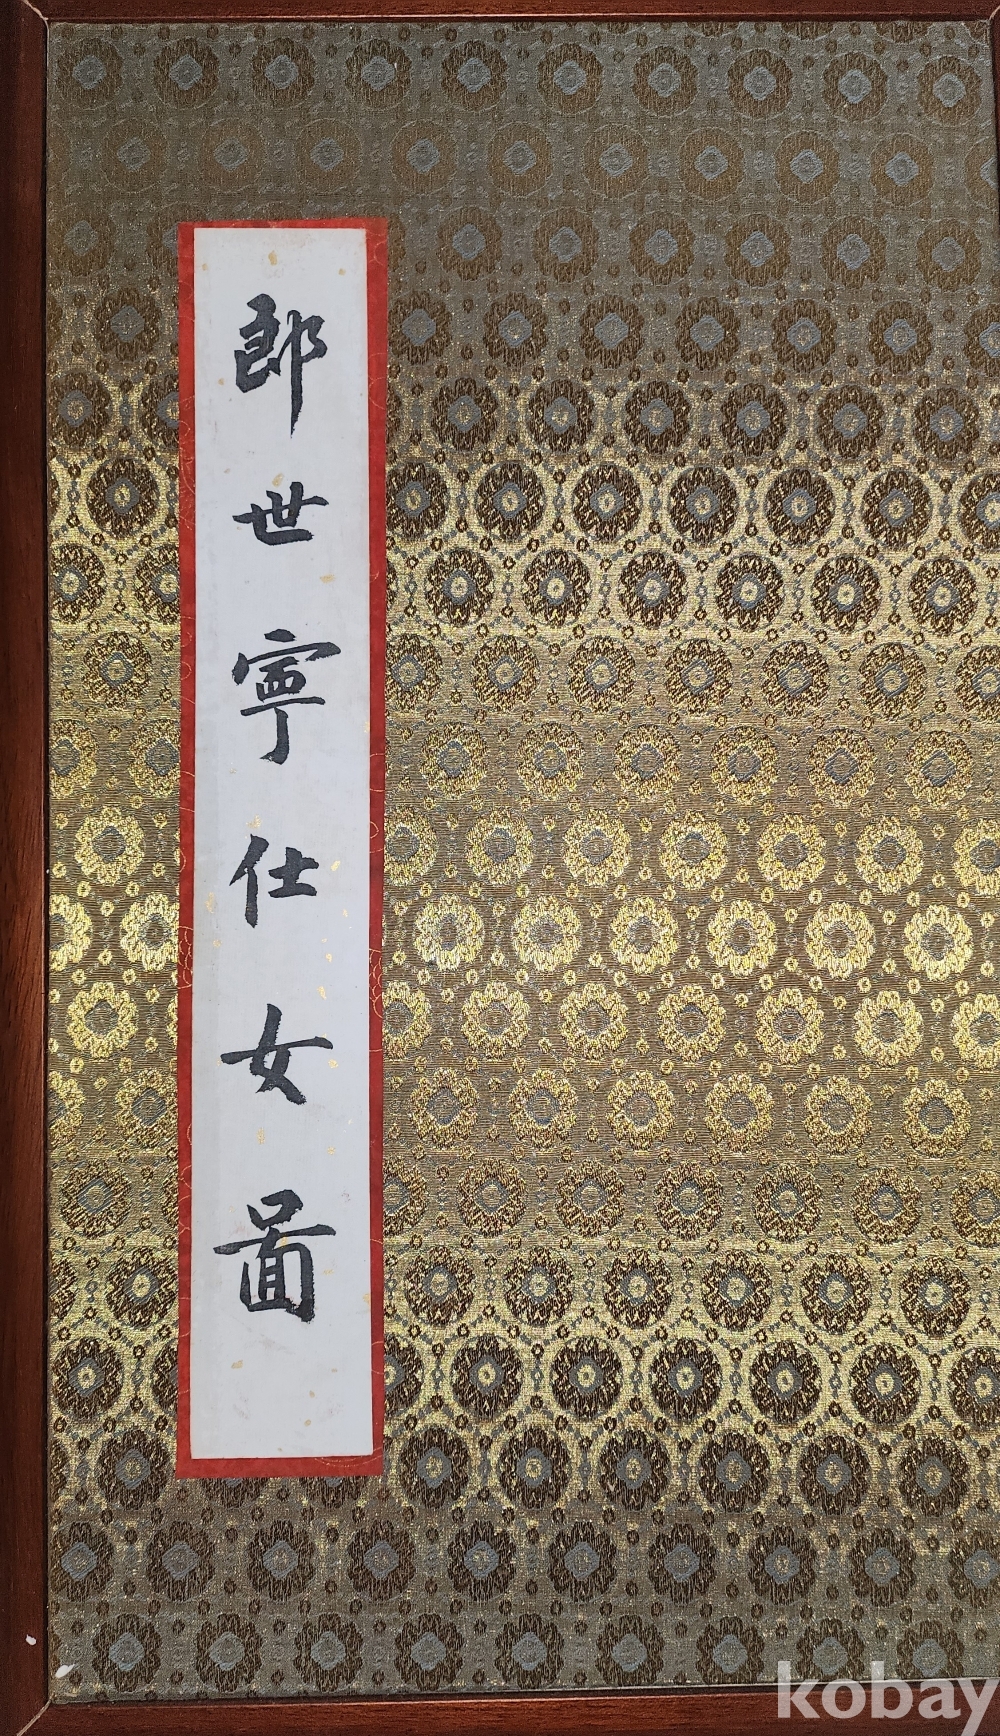 郎世寧仕女啚
kobay